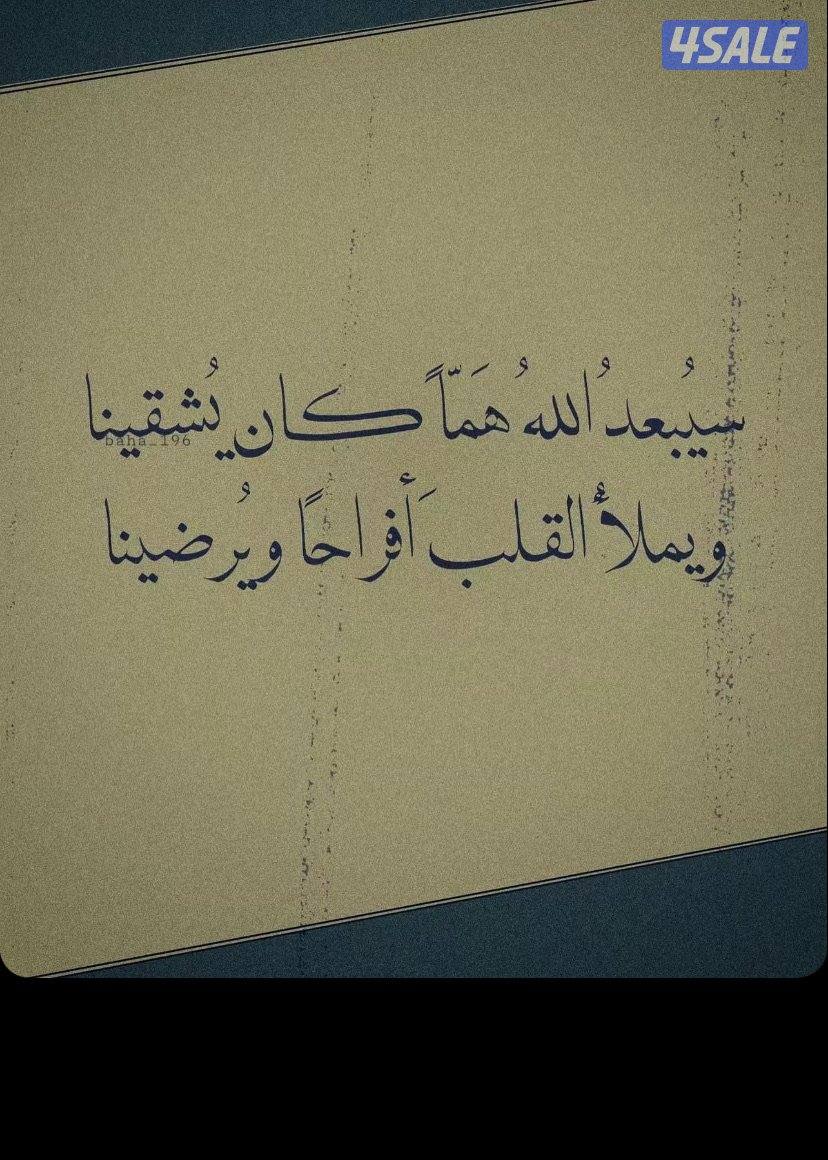 4SALE
سيُبعدُ اللهُ هَمّاً كان يُشقينا
baha_196
ويملأُ القلبَ أفراحًا ويُرضينا